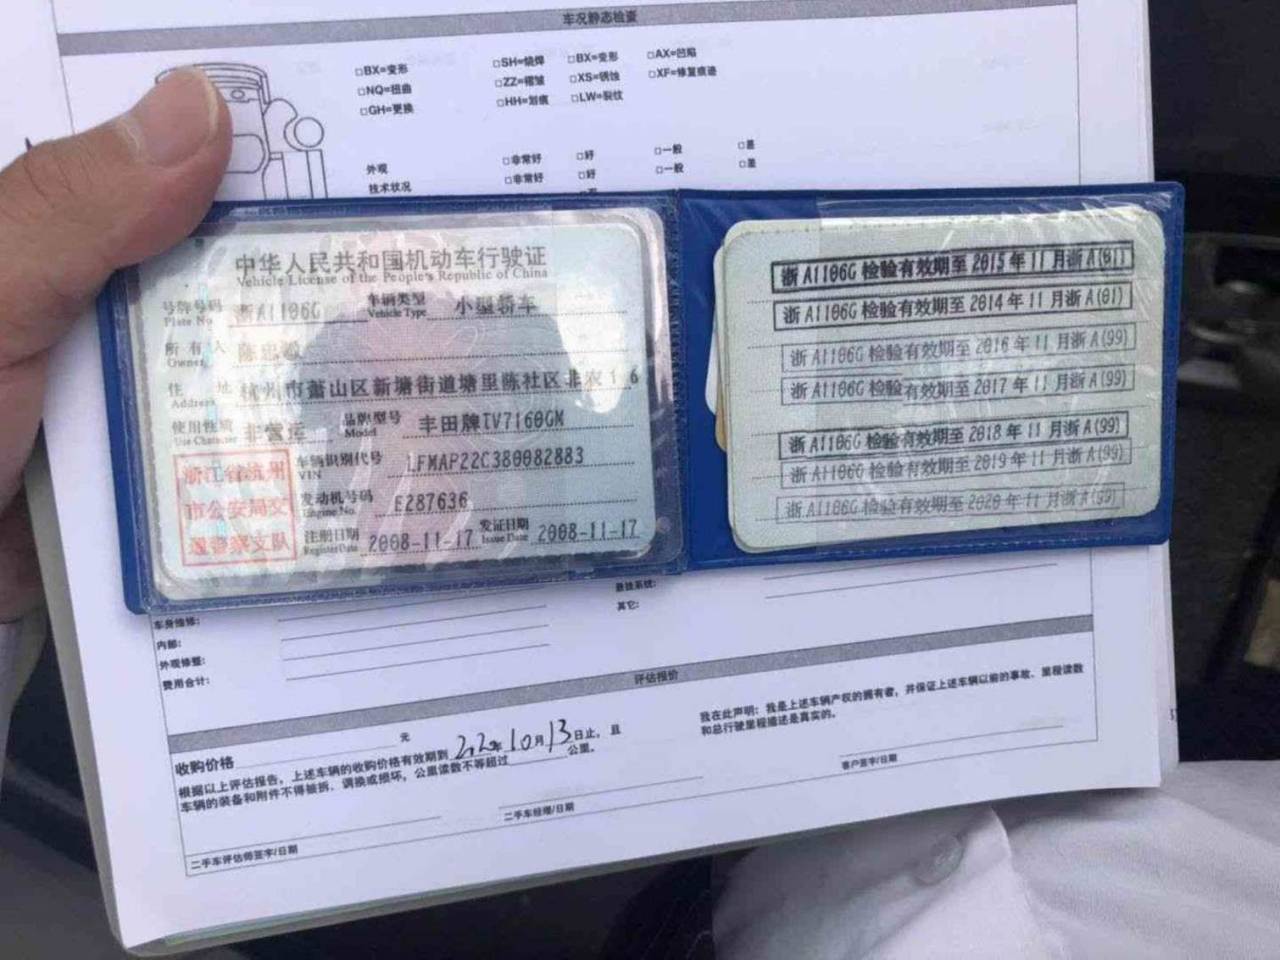 车况静态检查
□BX=变形 □SH=烧焊 □BX=变形 □AX=凹陷
□NQ=扭曲 □ZZ=褶皱 □XS=锈蚀 □XF=修复痕迹
□GH=更换 □HH=划痕 □LW=裂纹
外观 □非常好 □好 □一般 □差
技术状况 □非常好 □好 □一般 □差
中华人民共和国机动车行驶证
Vehicle License of the People's Republic of China
号牌号码 浙A1106G 车辆类型 小型轿车
Plate No. Vehicle Type
所有人 陈忠
Owner
住址 杭州市萧山区新塘街道塘里陈社区非农116
Address
使用性质 非营运 品牌型号 丰田牌TV7160GM
Use Character Model
浙江省杭州市公安局交通警察支队
车辆识别代号 LFMAP22C380082883
VIN
发动机号码 E287636
Engine No.
注册日期 2008-11-17 发证日期 2008-11-17
Register Date Issue Date
浙A1106G 检验有效期至2015年11月浙A(01)
浙A1106G 检验有效期至2014年11月浙A(01)
浙A1106G 检验有效期至2016年11月浙A(99)
浙A1106G 检验有效期至2017年11月浙A(99)
浙A1106G 检验有效期至2018年11月浙A(99)
浙A1106G 检验有效期至2019年11月浙A(99)
浙A1106G 检验有效期至2020年11月浙A(99)
悬挂系统:
其它:
车身维修:
内部:
外观修整:
费用合计:
评估报价
收购价格 元
根据以上评估报告,上述车辆的收购价格有效期到 年10月13日止,且
车辆的装备和附件不得被拆、调换或损坏,公里读数不等超过 公里。
我在此声明:我是上述车辆产权的拥有者,并保证上述车辆以前的事故、里程读数
和总行驶里程描述是真实的。
客户签字/日期
二手车经理/日期
二手车评估师签字/日期